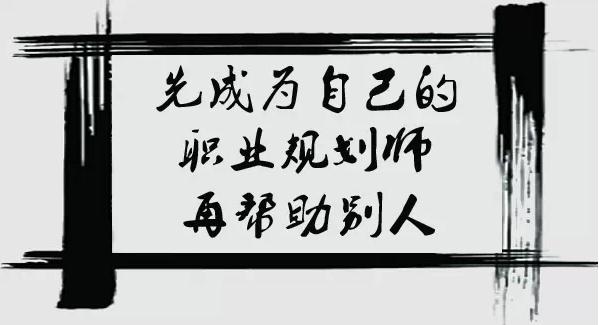 先成为自己的
职业规划师
再帮助别人